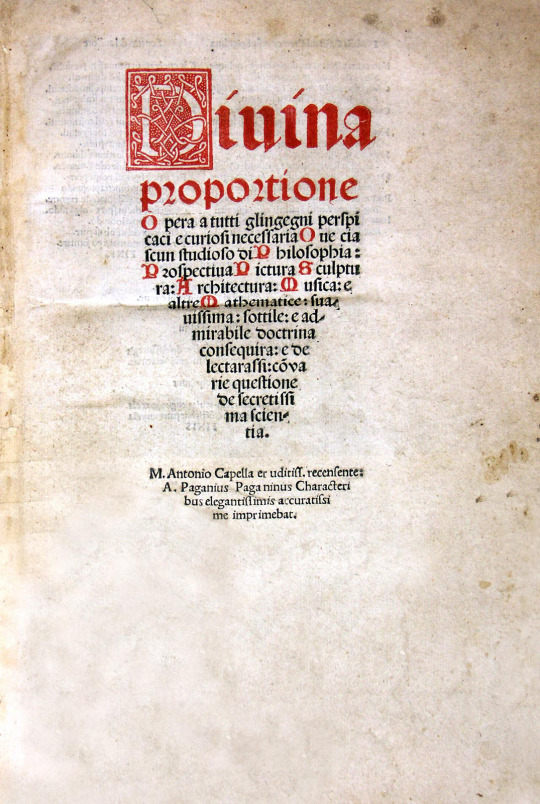 Diuina
proportione
Opera a tutti glingegni perspi
caci e curiosi necessaria Oue cia
scun studioso di Philosophia:
Prospectiua Pictura Sculptu
ra: Architectura: Musica: e
altre Mathematice: sua-
uissima: sottile: e ad-
mirabile doctrina
consequira: e de
lectarassi: cõ va
rie questione
de secretissi
ma scien-
tia.
M. Antonio Capella eruditiss. recensente:
A. Paganius Paganinus Characteri
bus elegantissimis accuratissi
me imprimebat.